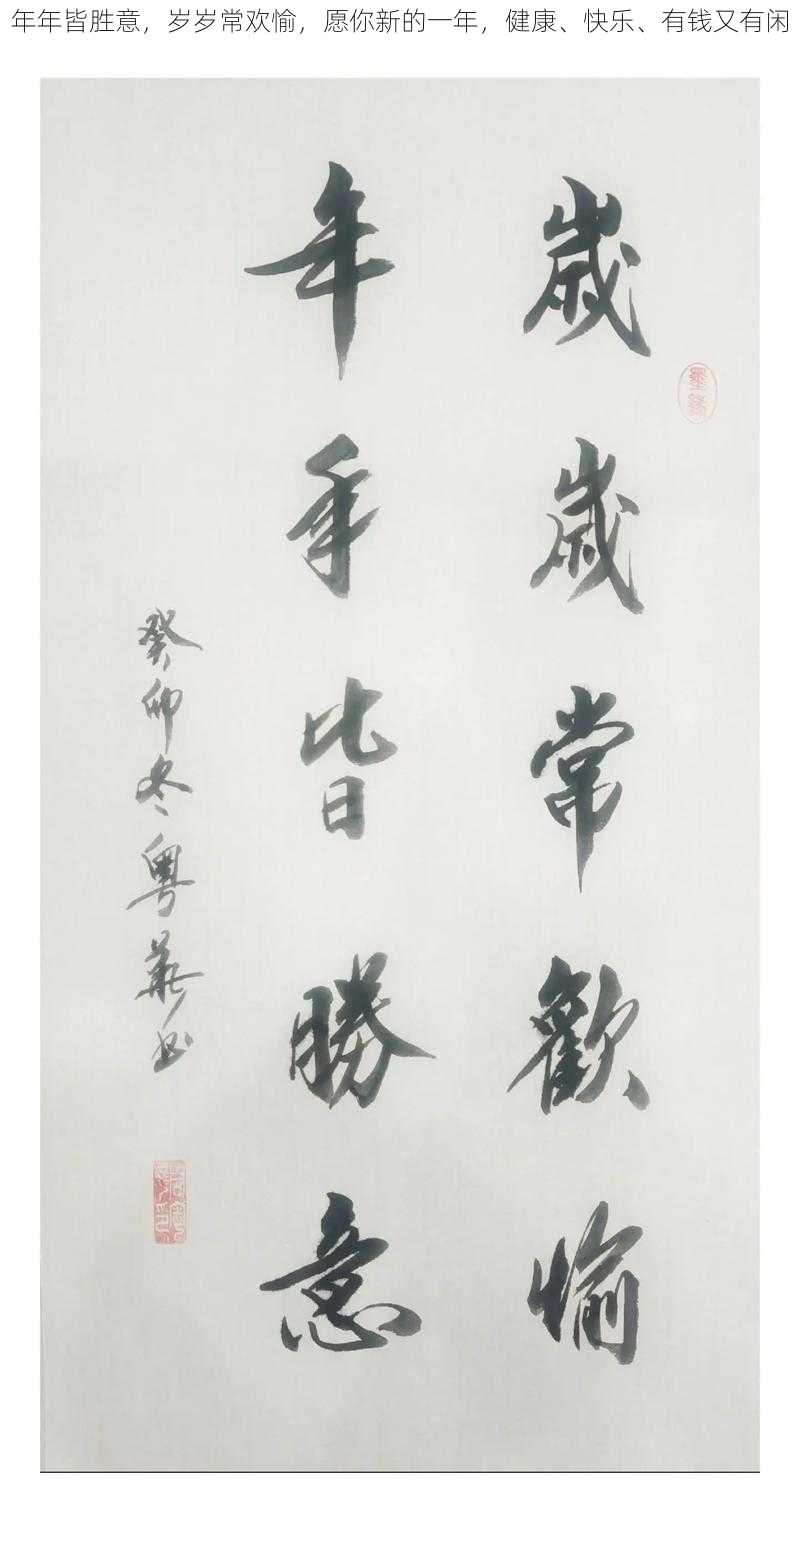 年年皆胜意，岁岁常欢愉，愿你新的一年，健康、快乐、有钱又有闲
歲歲常歡愉
年年皆勝意
癸卯冬粤華书
墨緣